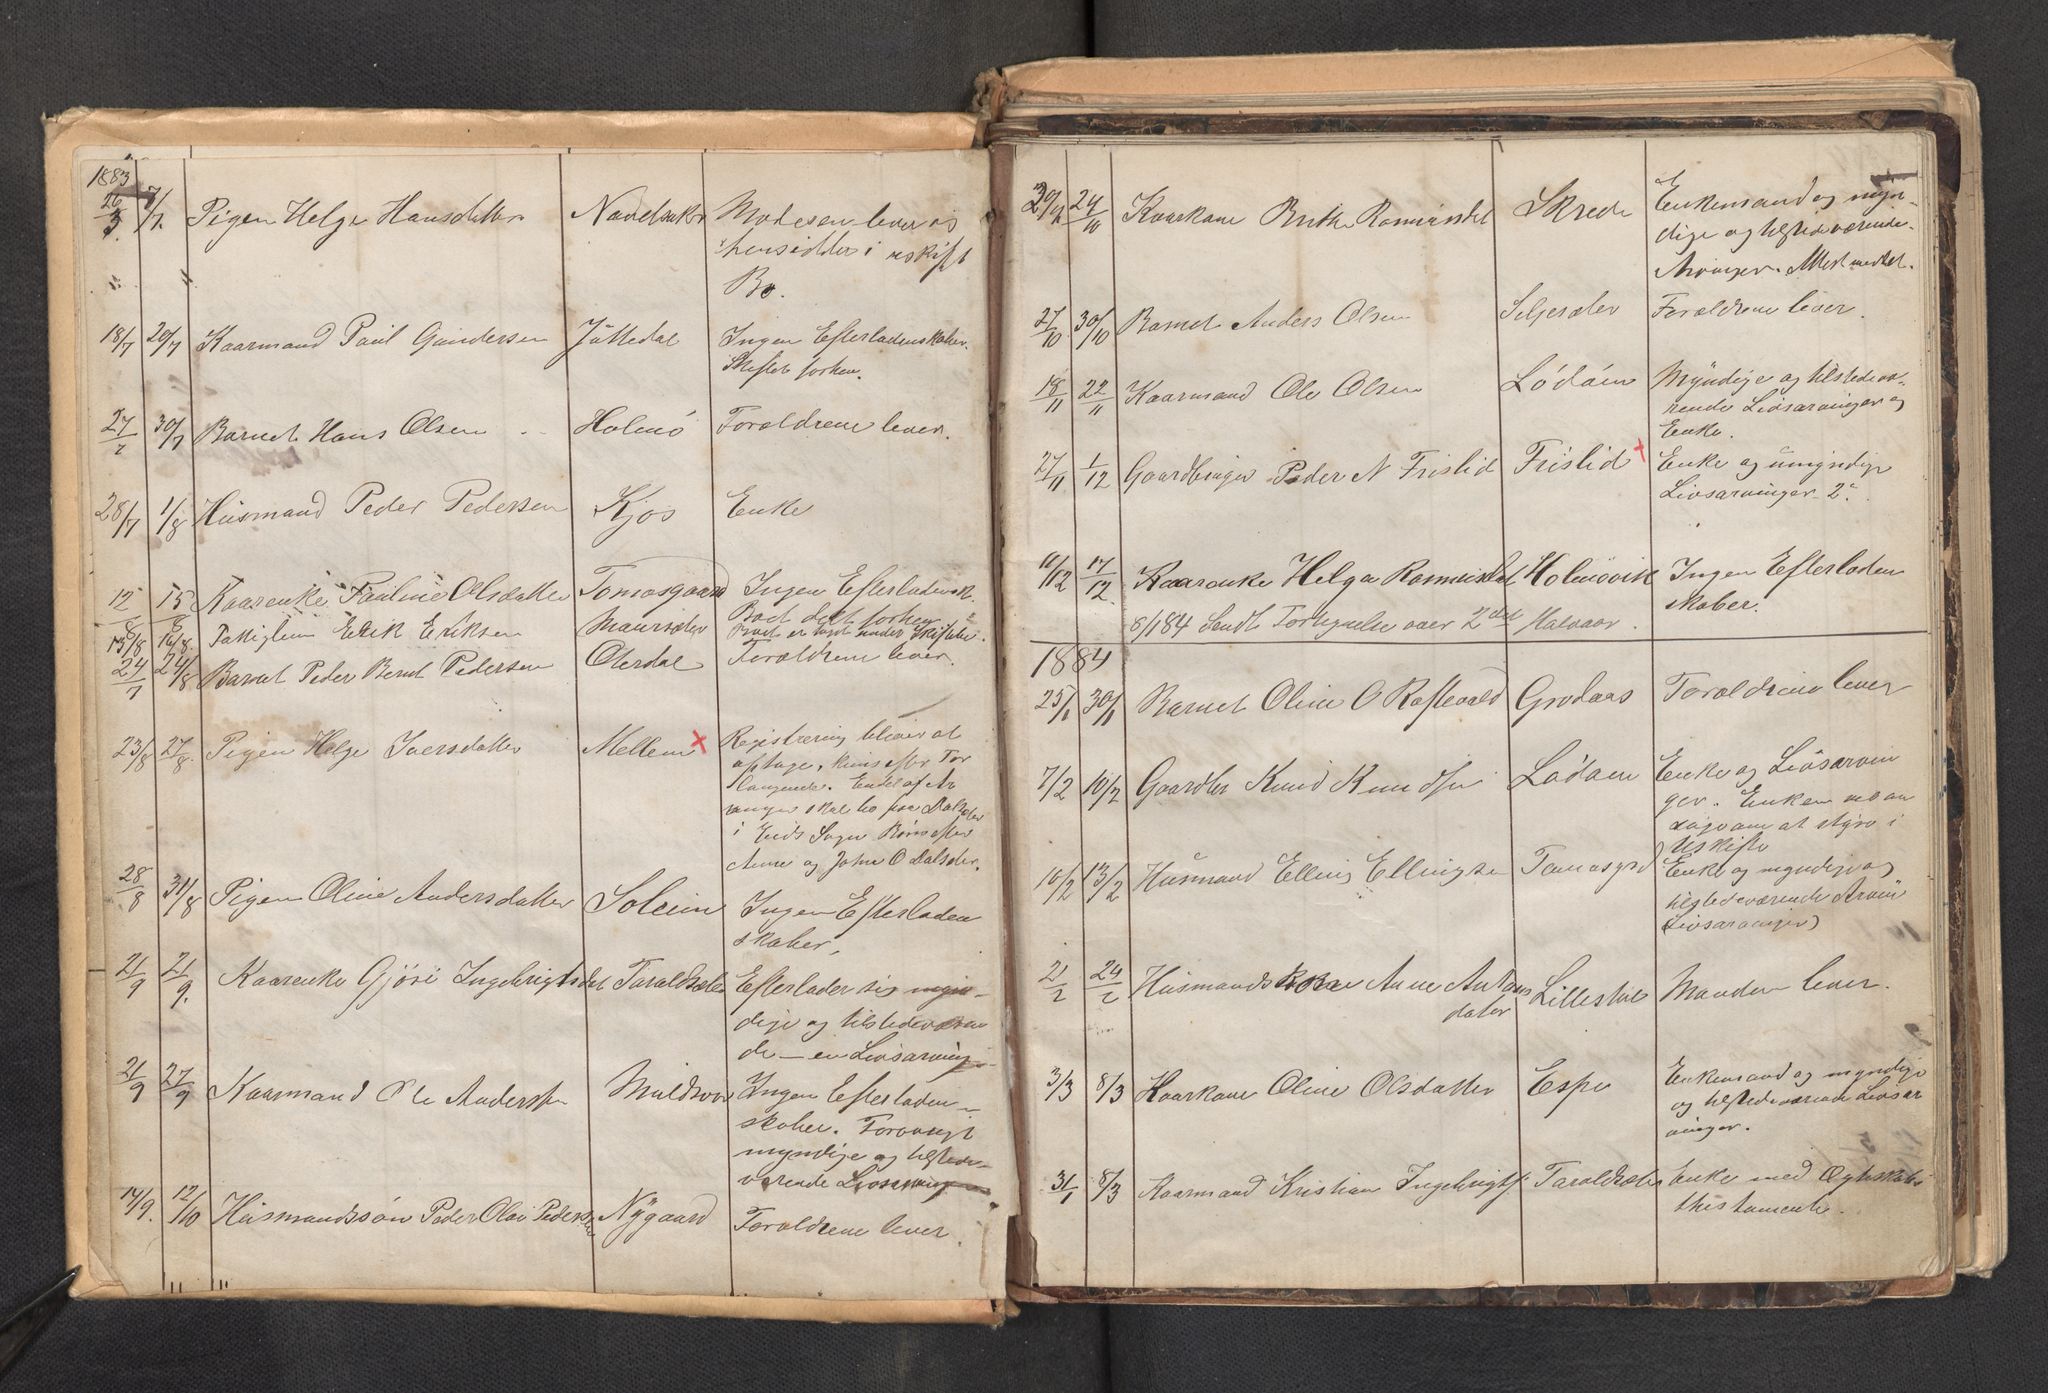 1883
26/5 7/7. Pigen Helge Hansdatter Navelsaker Moderen lever og
hensidder i uskift
Bo.
18/7 20/7 Kaarmand Paul Gundersen Juttedal Ingen Efterladenskaber.
Skiftet forhen.
27/7 30/7 Barnet Hans Olsen Holmö Foraldrene lever.
28/7 1/8 Husmand Peder Pedersen Kjos Enke
12/8 15/8 Kaarenke Pauline Olsdatter Tomasgaard Ingen Efterladensk.
Boet delt forhen
15/8 16/8. Fattiglem Erik Eriksen Maursæter Boet er under Skifte.
24/7 24/8 Barnet Peder Bernt Pedersen Oterdal Foraldrene lever.
23/8 27/8. Pigen Helge Iversdatter Mellem Registrering bliver at
optage, hvis efter For
langende. Endel af Ar
vinger skal bo paa Dalsæter
i Eids Sogn
Anne og John O Dalsæter.
28/8 31/8 Pigen Oline Andersdatter Soleim Ingen Efterladen
skaber.
21/9 21/9. Kaarenke Gjöri Ingebrigtsdat Taraldsæter Efterlader sig myn-
dige og tilstedeværen
de - en Livsarving
21/9 27/9 Kaarmand Ole Andersen Muldsvor Ingen Efterladen-
skaber. Forøvrigt
myndige og tilstede-
værende Livsarving
14/9. 12/10 Husmandssön Peder Olai Pedersen Nygaard Foraldrene lever.
20/9 24/10 Kaarkone Brithe Rasmusdat Skrede Enkemand og myn-
dige og tilstedeværende
Arvinger. Attest meddelt.
27/10 30/10 Barnet Anders Olsen Seljesæter Forældrene lever.
18/11 22/11 Kaarmand Ole Olsen Lödöen Myndige og tilstedevæ-
rende Livsarvinger og
Enke.
27/11 1/12 Gaardbruger Peder N Frislid Frislid Enke og umyndige
Livsarvinger 2.
11/12 17/12 Kaarenke Helga Rasmusdat Holmövik Ingen Efterladen
skaber.
8/1 84 Sendt Fortegnelse over 2det Halvaar.
1884
25/1 30/1 Barnet Oline O Raftevold Grodaas Foraldrene lever
7/2 10/2 Gaardbr Knud Knudsen Lödöen Enke og Livsarvin
ger. Enken
at styre i
Uskifte
10/2 13/2 Husmand Elling Ellingsen Tomasgrd Enke og myndige og
tilstedeværende Arvin
(Livsarvinger)
21/2 24/2 Husmandskone Anne Antons
dater Lillestöl Manden lever.
3/3 8/3 Kaarkone Oline Olsdatter Espe Enkemand og myndige
og tilstedeværende Livsar
vinger.
31/1 8/3 Kaarmand Kristian Ingebrigts. Taraldsæter Enke med Ægteskabs
thistamente.